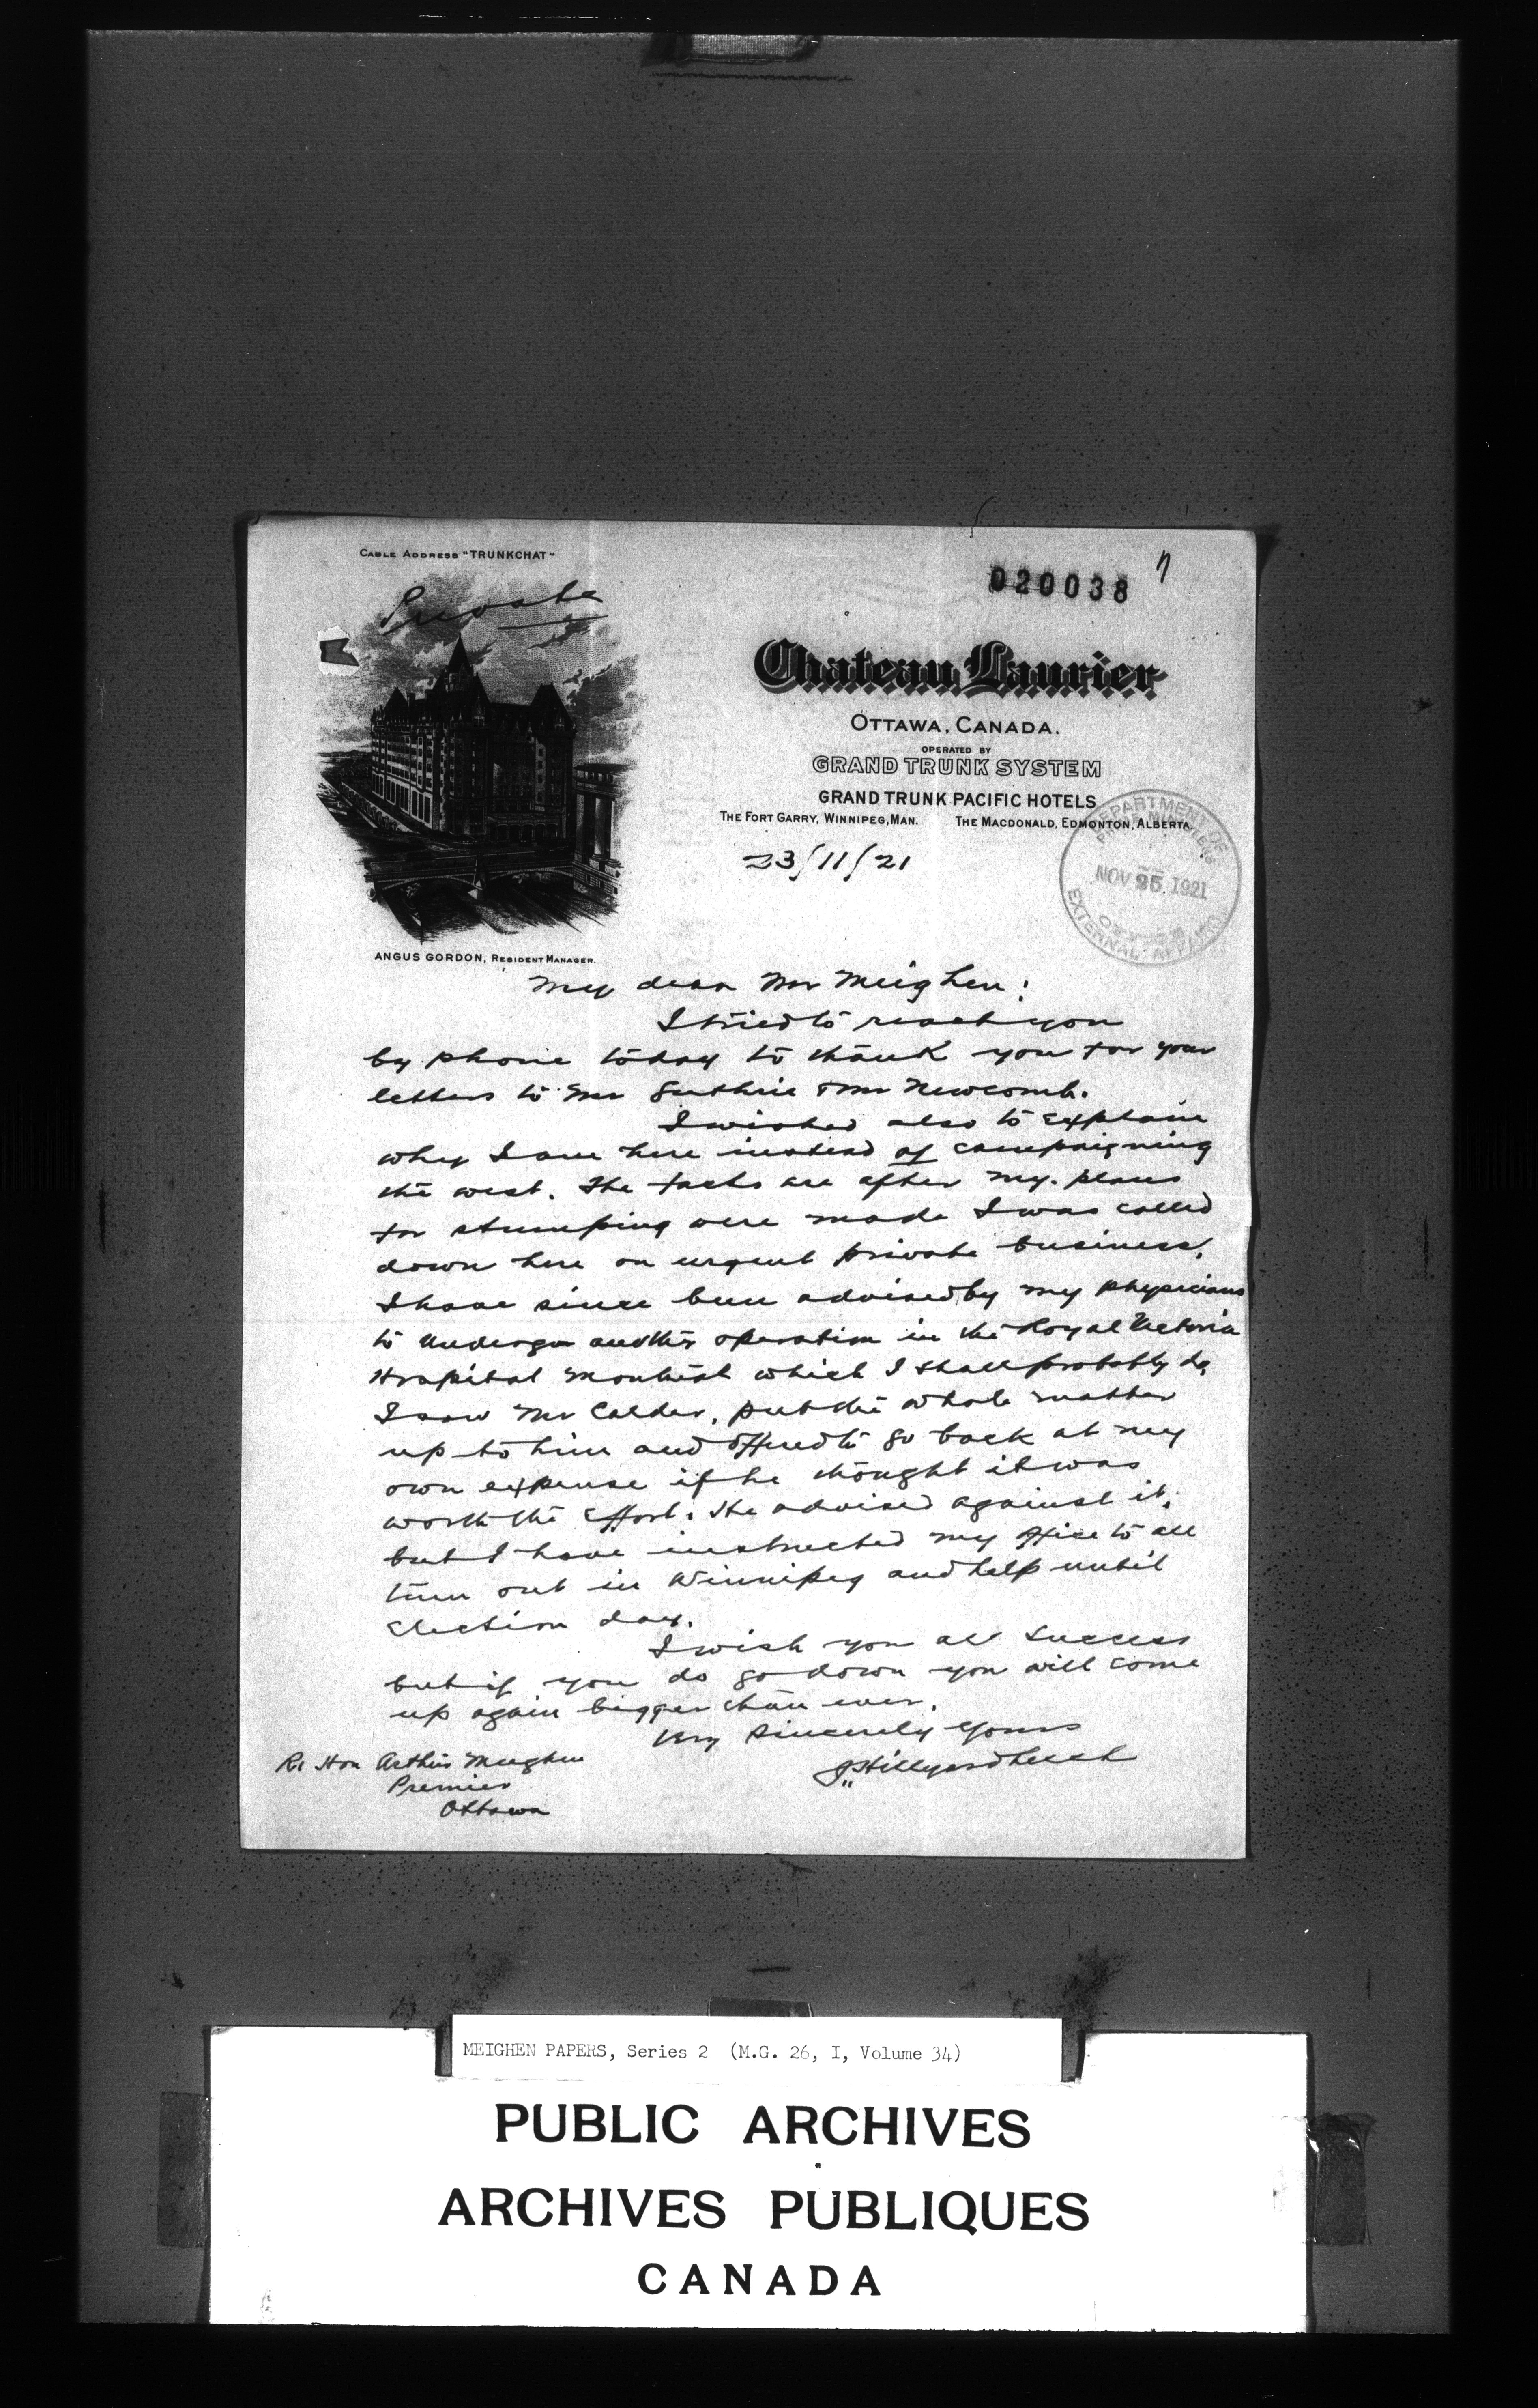 CABLE ADDRESS "TRUNKCHAT"
Private
020038
Chateau Laurier
OTTAWA, CANADA.
OPERATED BY
GRAND TRUNK SYSTEM
GRAND TRUNK PACIFIC HOTELS
THE FORT GARRY, WINNIPEG, MAN. THE MACDONALD, EDMONTON, ALBERTA.
DEPARTMENT OF
NOV 25 1921
EXTERNAL AFFAIRS
23/11/21
ANGUS GORDON, RESIDENT MANAGER.
My dear Mr Meighen:
I tried to reach you
by phone today to thank you for your
letters to Mr Guthrie & Mr Newcomb.
I wished also to explain
why I am here instead of campaigning
the west. The facts are after my plans
for stumping were made I was called
down here on urgent private business.
I have since been advised by my physicians
to undergo another operation in the Royal Victoria
Hospital Montreal which I shall probably do.
I saw Mr Calder, put the whole matter
up to him and offered to go back at my
own expense if he thought it was
worth the effort. He advised against it,
but I have instructed my office to all
turn out in Winnipeg and help until
election day.
I wish you all success
but if you do go down you will come
up again bigger than ever.
Very Sincerely Yours
J Hillyard Leech
Rt Hon Arthur Meighen
Premier
Ottawa
MEIGHEN PAPERS, Series 2 (M.G. 26, I, Volume 34)
PUBLIC ARCHIVES
ARCHIVES PUBLIQUES
CANADA